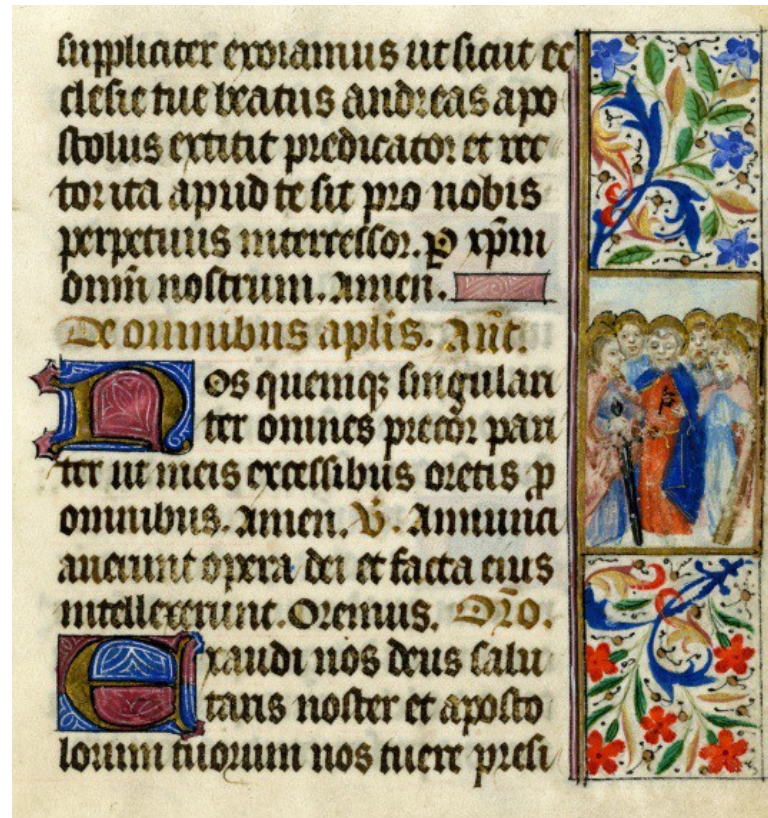 suppliciter exoramus ut sicut ec
clesie tue beatus andreas apo
stolus extitit predicator et rec
tor ita apud te sit pro nobis
perpetuus intercessor. p xpm
dnm nostrum. Amen.
De omnibus aplis. Ant.
Nos quemq; singulari
ter omnes precor pari
ter ut meis excessibus oretis p
omnibus. Amen. V. Annunci
auerunt opera dei et facta eius
intellexerunt. Oremus. Oro.
Exaudi nos deus salu
taris noster et aposto
lorum tuorum nos tuere presi